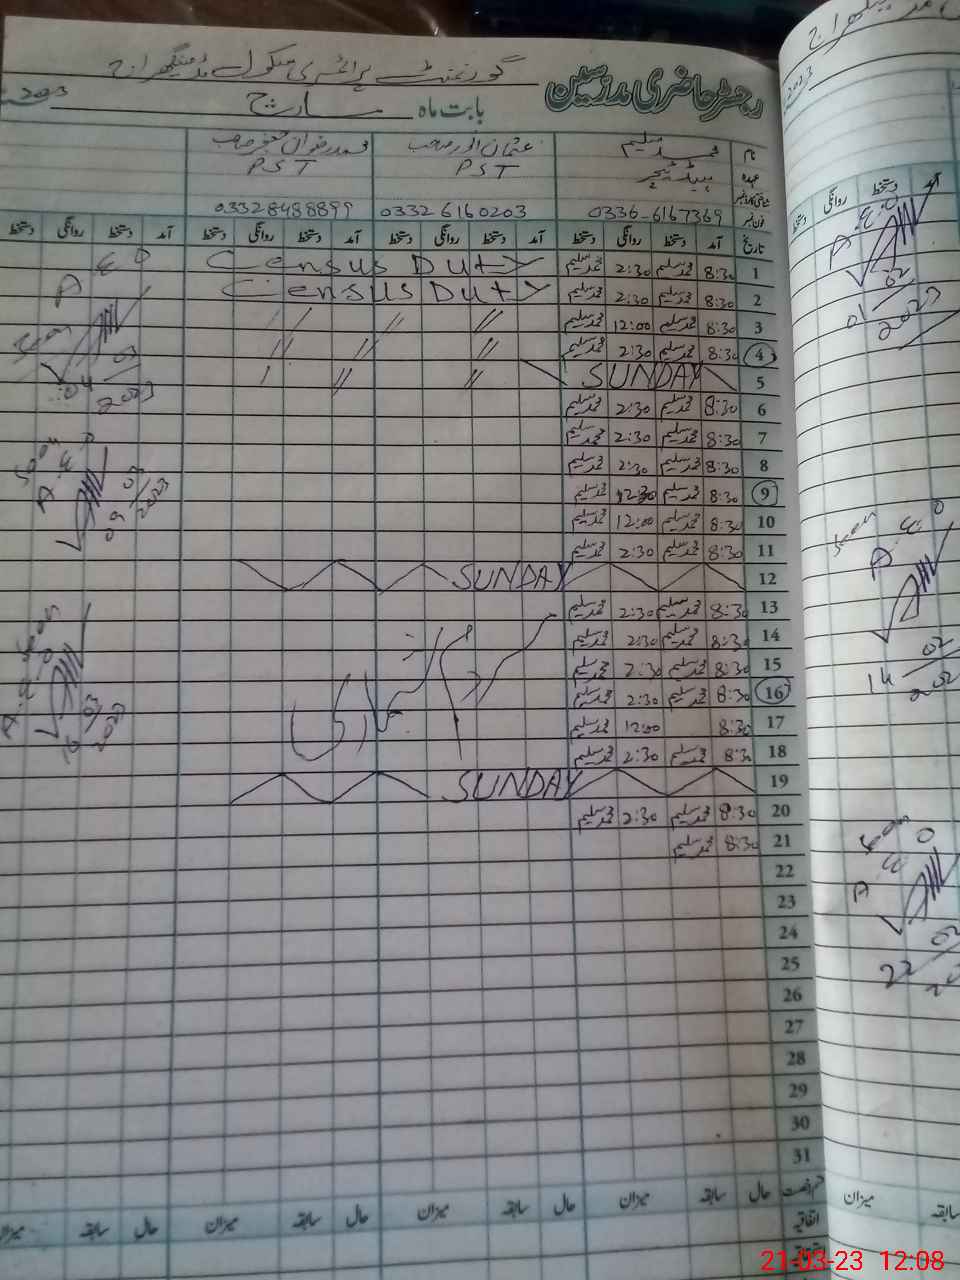 رجسٹر حاضری مدرسین
گورنمنٹ پرائمری سکول
بابت ماہ مارچ 2023
نام محمد سلیم عثمان صاحب صاحب
عہدہ ہیڈ ٹیچر PST PST
فون نمبر 0336-6167369 03326160203 03328488899
تاریخ آمد دستخط روانگی دستخط آمد دستخط روانگی دستخط آمد دستخط روانگی دستخط آمد دستخط روانگی دستخط
1 8:30 محمد سلیم 2:30 محمد سلیم Census Duty
2 8:30 محمد سلیم 2:30 محمد سلیم Census Duty
3 8:30 محمد سلیم 12:00 محمد سلیم // // //
4 8:30 محمد سلیم 2:30 محمد سلیم // // //
5 SUNDAY // //
6 8:30 محمد سلیم 2:30 محمد سلیم
7 8:30 محمد سلیم 2:30 محمد سلیم
8 8:30 محمد سلیم 2:30 محمد سلیم
9 8:30 محمد سلیم 12:30 محمد سلیم
10 8:30 محمد سلیم 12:00 محمد سلیم
11 8:30 محمد سلیم 2:30 محمد سلیم
12 SUNDAY
13 8:30 محمد سلیم 2:30 محمد سلیم
14 8:30 محمد سلیم 2:30 محمد سلیم
15 8:30 محمد سلیم 2:30 محمد سلیم
16 8:30 محمد سلیم 2:30 محمد سلیم
17 8:30 12:00 محمد سلیم
18 8:30 محمد سلیم 2:30 محمد سلیم
19 SUNDAY
20 8:30 محمد سلیم 2:30 محمد سلیم
21 8:30 محمد سلیم
22
23
24
25
26
27
28
29
30
31
قسم رخصت حال سابقہ میزان حال سابقہ میزان حال سابقہ میزان حال سابقہ میزان
اتفاقیہ
Seen
A.E.O
04/03/2023
Seen
A.E.O
09/03/2023
Seen
A.E.O
16/03/2023
2023
آمد دستخط روانگی دستخط
A.E.O
01/02/2023
Seen
A.E.O
14/02
Seen
A.E.O
22/02
میزان سابقہ
21-03-23 12:08